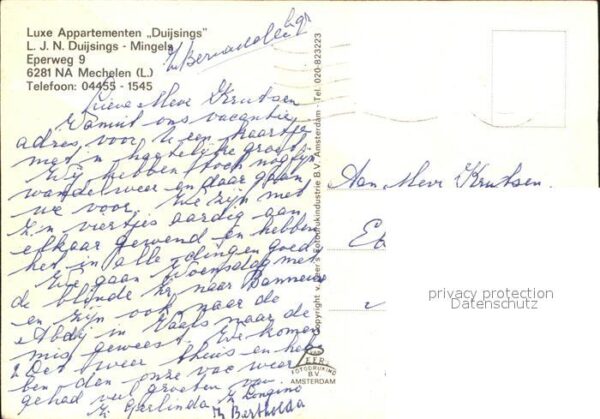 Luxe Appartementen „Duijsings"
L. J. N. Duijsings - Mingels
Eperweg 9
6281 NA Mechelen (L.)
Telefoon: 04455 - 1545
Lieve Mevr Krutsen
Vanuit ons vacantie
adres, voor U een kaartje
met 'n hartelijke groet.
Wij hebben toch nog fijn
wandelweer en daar gaan
we voor. We zijn met
z'n viertjes aardig aan
elkaar gewend en hebben
het in alle dingen goed
We gaan Woensdag met
de blinde Zr naar Banneux
en zijn ook naar de
Abdij in Vaals naar de
mis geweest. We komen
weer thuis en heb
ben dan onze vac weer
gehad veel groeten van
Zr Gerlinda Zr Longino
Zr Bertholda
Zr Bernadet
Copyright v. Leer's Fotodrukindustrie B.V. Amsterdam - Tel. 020-823223
LEER'S
FOTODRUKIND
B.V.
AMSTERDAM
Aan Mevr Krutsen.
privacy protection
Datenschutz